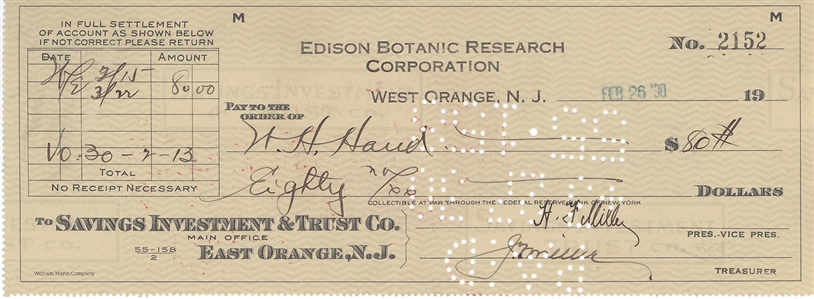 M
M
IN FULL SETTLEMENT
OF ACCOUNT AS SHOWN BELOW
IF NOT CORRECT PLEASE RETURN
DATE AMOUNT
3/15
3/22 80 00
VO. 30-2-13
TOTAL
NO RECEIPT NECESSARY
EDISON BOTANIC RESEARCH
CORPORATION
No. 2152
WEST ORANGE, N. J. FEB 26 '30 19
PAY TO THE
ORDER OF W. H. Hand $ 80
Eighty no/xx DOLLARS
COLLECTIBLE AT PAR THROUGH THE FEDERAL RESERVE BANK OF NEW YORK
TO SAVINGS INVESTMENT & TRUST CO.
MAIN OFFICE
55-158
2
EAST ORANGE, N.J.
H. F. Miller
PRES.-VICE PRES.
TREASURER
William Mann Company